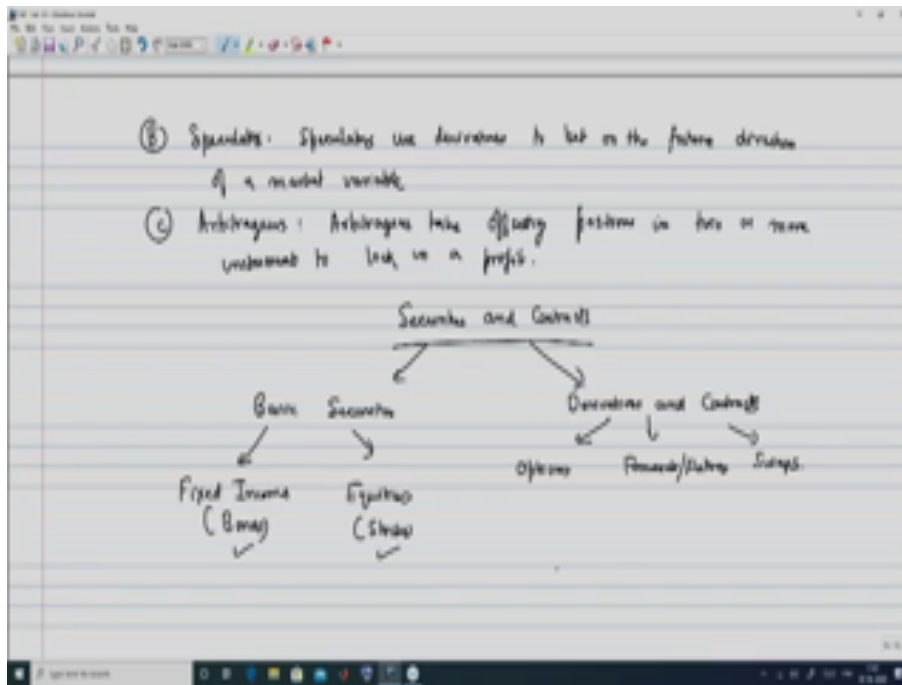 (B) Speculators: Speculators use derivatives to bet on the future direction
of a market variable
(C) Arbitrageurs: Arbitrageurs take offsetting positions in two or more
instruments to lock in a profit.
Securities and Contracts
Basic Securities
Derivatives and Contracts
Options
Forwards/Futures
Swaps.
Fixed Income
(Bonds)
Equities
(Stocks)